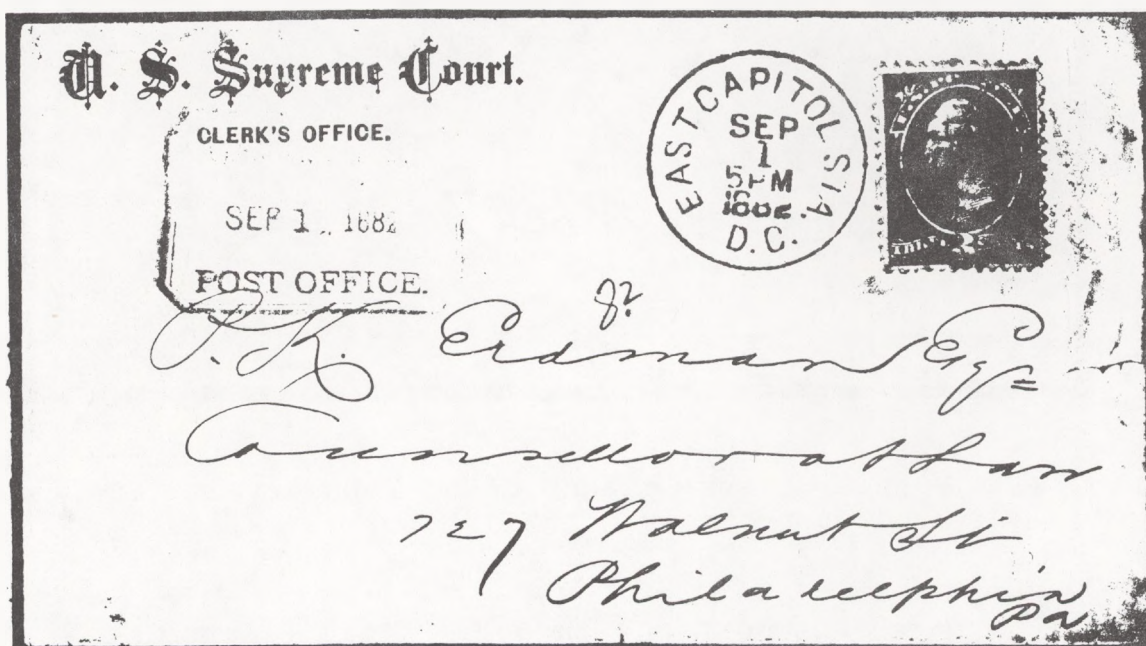 U. S. Supreme Court.
CLERK'S OFFICE.
SEP 1 1882
POST OFFICE.
EAST CAPITOL STA
SEP
1
5PM
1882.
D.C.
K. Erdman Esq
Counsellor at Law
727 Walnut St
Philadelphia
Pa